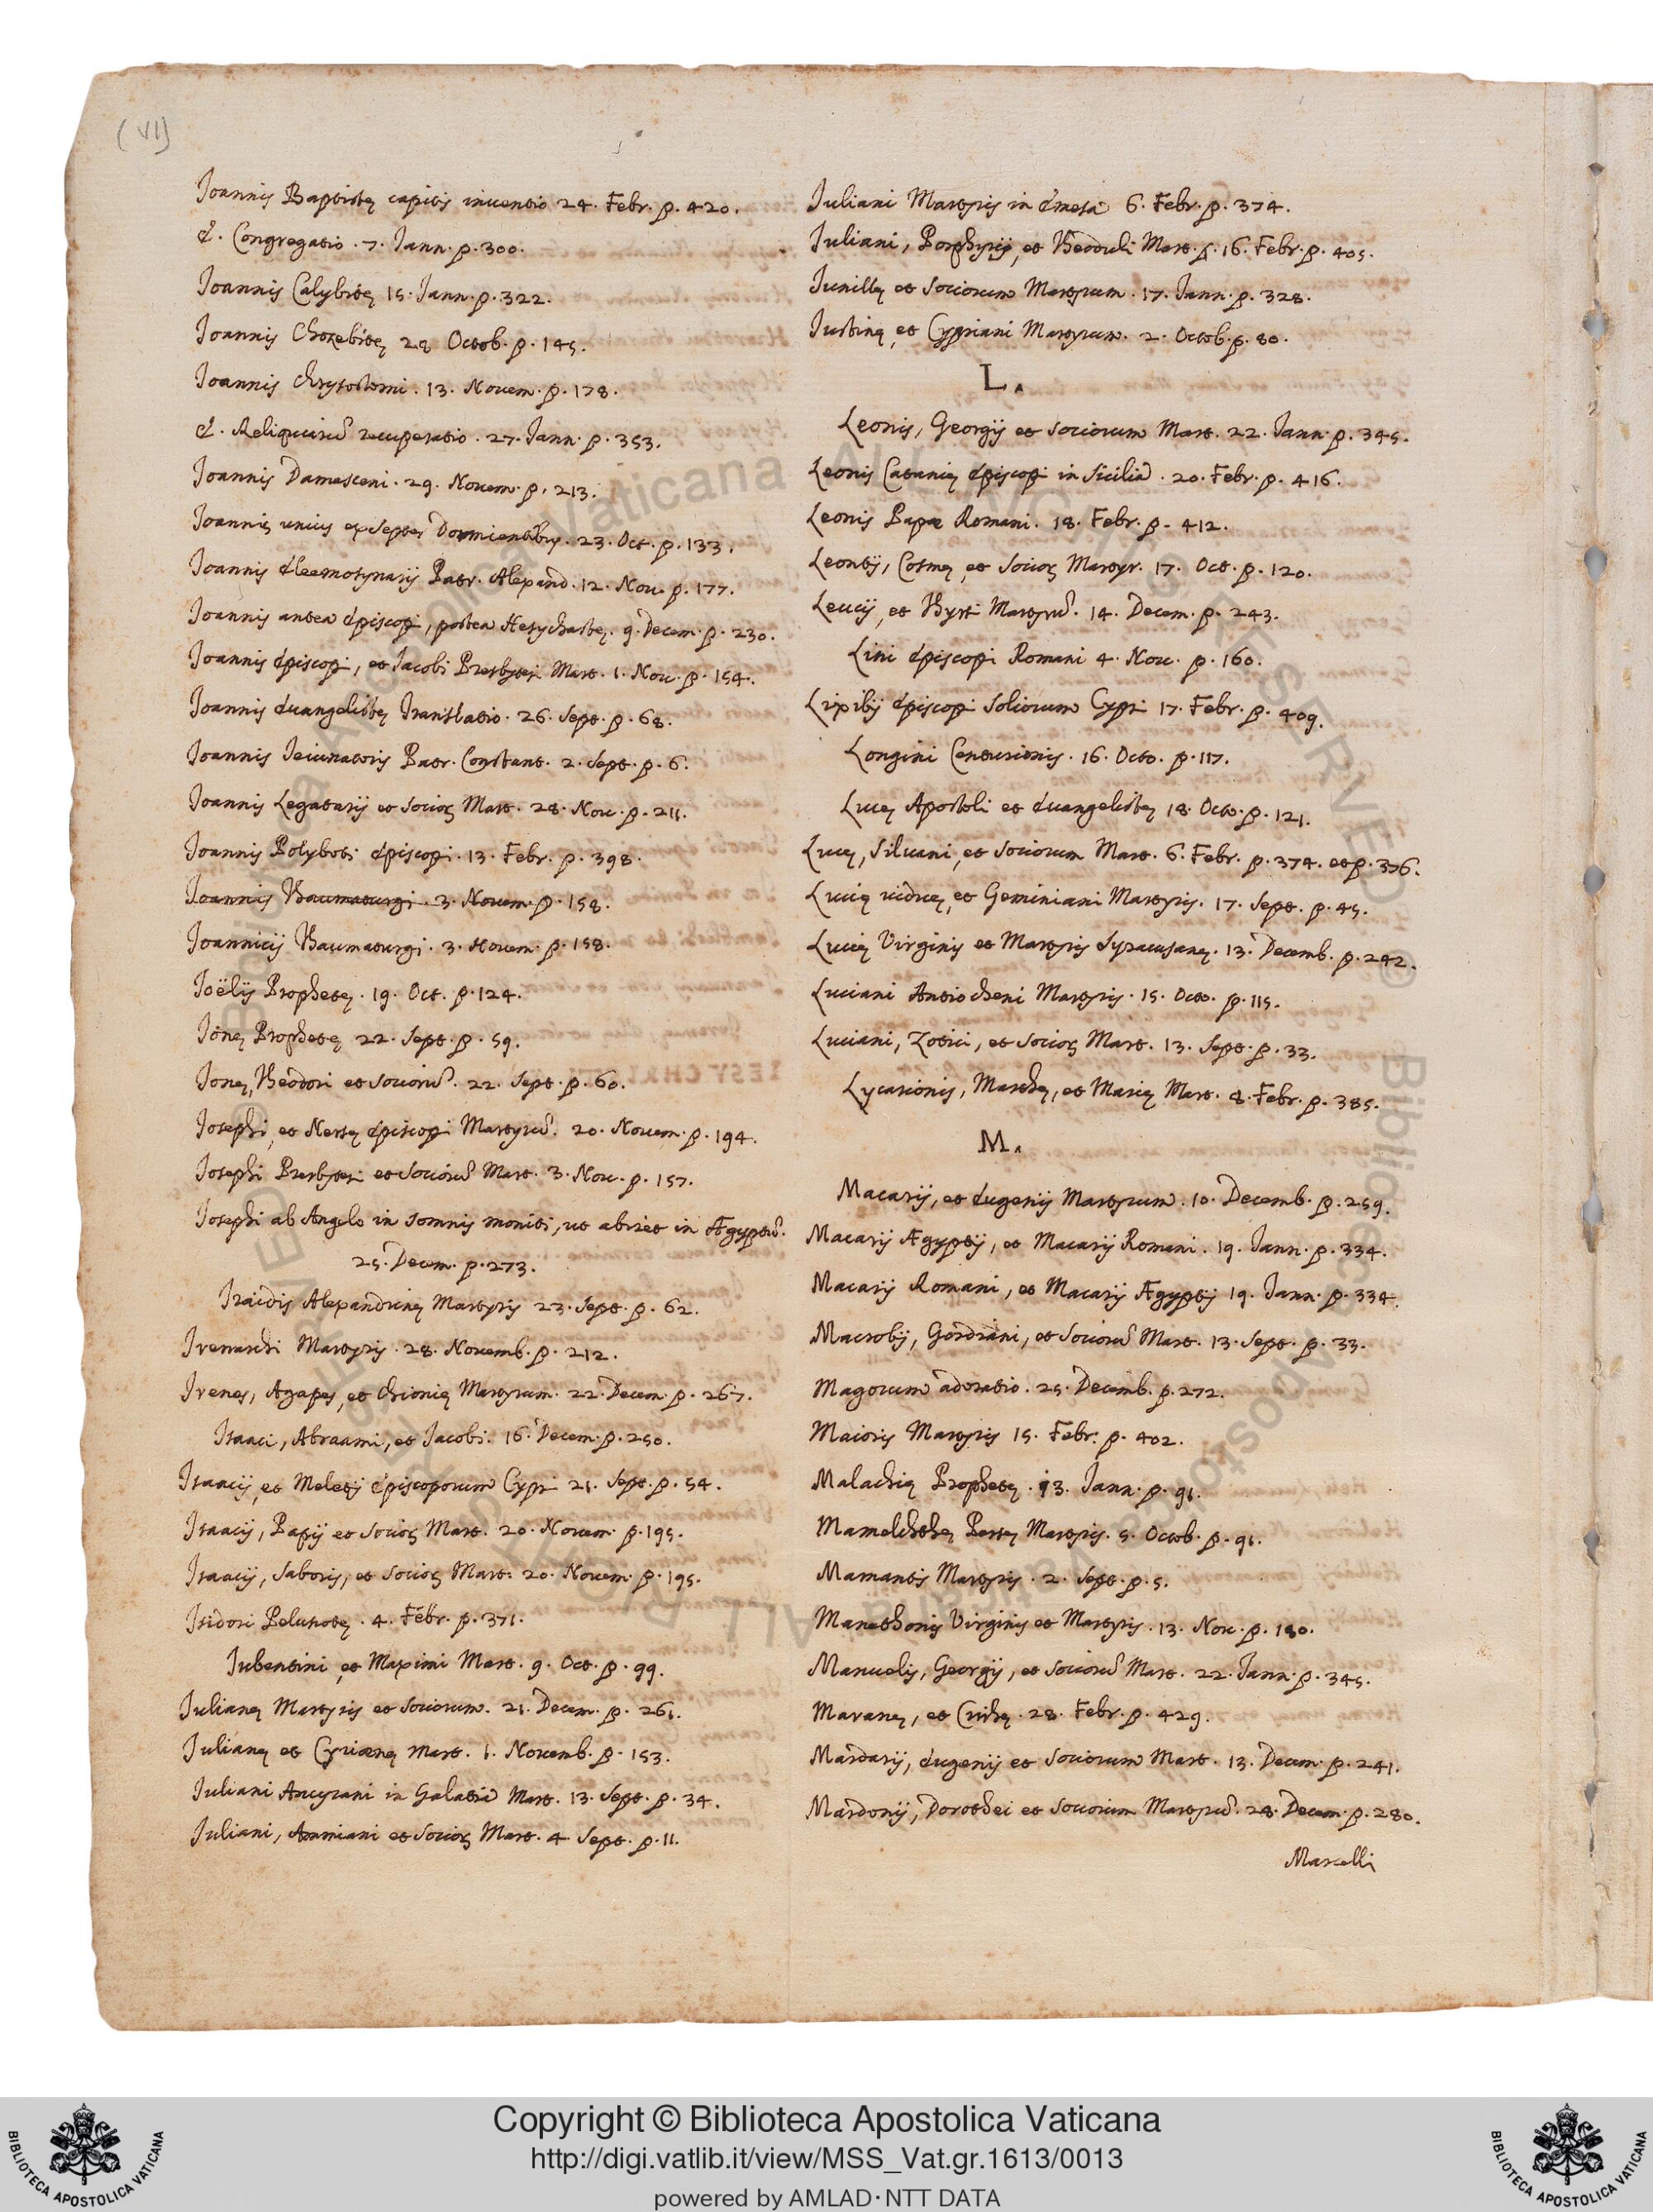 (VI)
Joannis Baptistę capitis inventio 24. Febr. p. 420.
E. Congregatio. 7. Jann. p. 300.
Joannis Calybitę 15. Jann. p. 322.
Joannis Chozebitę 28 Octob. p. 145.
Joannis Chrysostomi. 13. Novem. p. 178.
E. Reliquiarũ recuperatio. 27. Jann. p. 353.
Joannis Damasceni. 29. Novem. p. 213.
Joannis unius ex septem Dormientibus. 23. Oct. p. 133.
Joannis Eleemosynarij Patr. Alexand. 12. Nov. p. 177.
Joannis antea Episcopi, postea Hesychastę. 9. Decem. p. 230.
Joannis Episcopi, et Jacobi Presbyteri Mart. 1. Nov. p. 154.
Joannis Evangelistę Translatio. 26. Sept. p. 68.
Joannis Jeiunatoris Patr. Constant. 2. Sept. p. 6.
Joannis Legatarij et Socioꝝ Mart. 28. Nov. p. 211.
Joannis Polyboti Episcopi. 13. Febr. p. 398.
Joannis Thaumaturgi. 3. Novem. p. 158.
Joannicij Thaumaturgi. 3. Novem. p. 158.
Joëlis Prophetę. 19. Oct. p. 124.
Jonę Prophetę 22. Sept. p. 59.
Jonę, Theodori et Sociorũ. 22. Sept. p. 60.
Josephi, et Nersę Episcopi Martyrũ. 20. Novem. p. 194.
Josephi Presbyteri et Sociorũ Mart. 3. Nov. p. 157.
Josephi ab Angelo in somnis moniti, ut abiret in Ægyptũ.
25. Decem. p. 273.
Iraidis Alexandrinę Martyris 23. Sept. p. 62.
Irenarchi Martyris. 28. Novemb. p. 212.
Irenes, Agapes, et Chionię Martyrum. 22. Decem. p. 267.
Isaaci, Abraami, et Jacobi. 16. Decem. p. 250.
Isaacij, et Meletij Episcoporum Cypri 21. Sept. p. 54.
Isaacij, Papij et Socioꝝ Mart. 20. Novem. p. 195.
Isaacij, Saboris, et Socioꝝ Mart. 20. Novem. p. 195.
Isidori Pelusiotę. 4. Febr. p. 371.
Jubentini, et Maximi Mart. 9. Oct. p. 99.
Julianę Martyris et Sociorum. 21. Decem. p. 261.
Julianę et Cyrianę Mart. 1. Novemb. p. 153.
Juliani Ancyrani in Galatia Mart. 13. Sept. p. 34.
Juliani, Ammiani et Socioꝝ Mart. 4 Sept. p. 11.
Juliani Martyris in Emesa 6. Febr. p. 374.
Juliani, Porphyrij, et Theoduli Mart. 16. Febr. p. 405.
Junillę et Sociorum Martyrum. 17. Jann. p. 328.
Justinę, et Cypriani Martyrum. 2. Octob. p. 80.
L.
Leonis, Georgij et Sociorum Mart. 22. Jann. p. 345.
Leonis Catanię Episcopi in Sicilia. 20. Febr. p. 416.
Leonis Papæ Romani. 18. Febr. p. 412.
Leontij, Cosmę, et Socioꝝ Martyr. 17. Oct. p. 120.
Leucij, et Thyrsi Martyrũ. 14. Decem. p. 243.
Lini Episcopi Romani 4. Nov. p. 160.
Lixibij Episcopi Soliorum Cypri 17. Febr. p. 409.
Longini Centurionis. 16. Octo. p. 117.
Lucę Apostoli et Evangelistę 18. Octo. p. 121.
Lucę, Silvani, et Sociorum Mart. 6. Febr. p. 374. et p. 376.
Lucię viduę, et Geminiani Martyris. 17. Sept. p. 45.
Lucię Virginis et Martyris Syracusanę. 13. Decemb. p. 242.
Luciani Antiocheni Martyris. 15. Octo. p. 115.
Luciani, Zotici, et Socioꝝ Mart. 13. Sept. p. 33.
Lycarionis, Marthę, et Marię Mart. 8. Febr. p. 385.
M.
Macarij, et Eugenij Martyrum. 10. Decemb. p. 259.
Macarij Ægyptij, et Macarij Romani. 19. Jann. p. 334.
Macarij Romani, et Macarij Ægyptij 19. Jann. p. 334.
Macrobij, Gordiani, et Sociorũ Mart. 13. Sept. p. 33.
Magorum adoratio. 25. Decemb. p. 272.
Maioris Martyris 15. Febr. p. 402.
Malachię Prophetę. 13. Jann. p. 91.
Mamelchthę Persę Martyris. 5. Octob. p. 91.
Mamantis Martyris. 2. Sept. p. 5.
Manethonis Virginis et Martyris. 13. Nov. p. 180.
Manuelis, Georgij, et Sociorũ Mart. 22. Jann. p. 345.
Maranę, et Cyrhę. 28. Febr. p. 429.
Mardarij, Eugenij et Sociorum Mart. 13. Decem. p. 241.
Mardonij, Dorothei et Sociorum Martyrũ. 28. Decem. p. 280.
Marcelli
Copyright © Biblioteca Apostolica Vaticana
http://digi.vatlib.it/view/MSS_Vat.gr.1613/0013
powered by AMLAD·NTT DATA
BIBLIOTECA APOSTOLICA VATICANA
BIBLIOTECA APOSTOLICA VATICANA